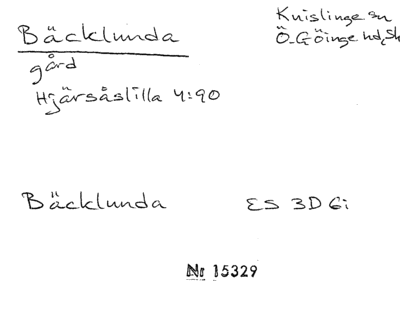 Bäcklunda
Knislinge sn
Ö. Göinge hd, Sk
gård
Hjärsåslilla 4:90
Bäcklunda ES 3D 6i
Nr 15329